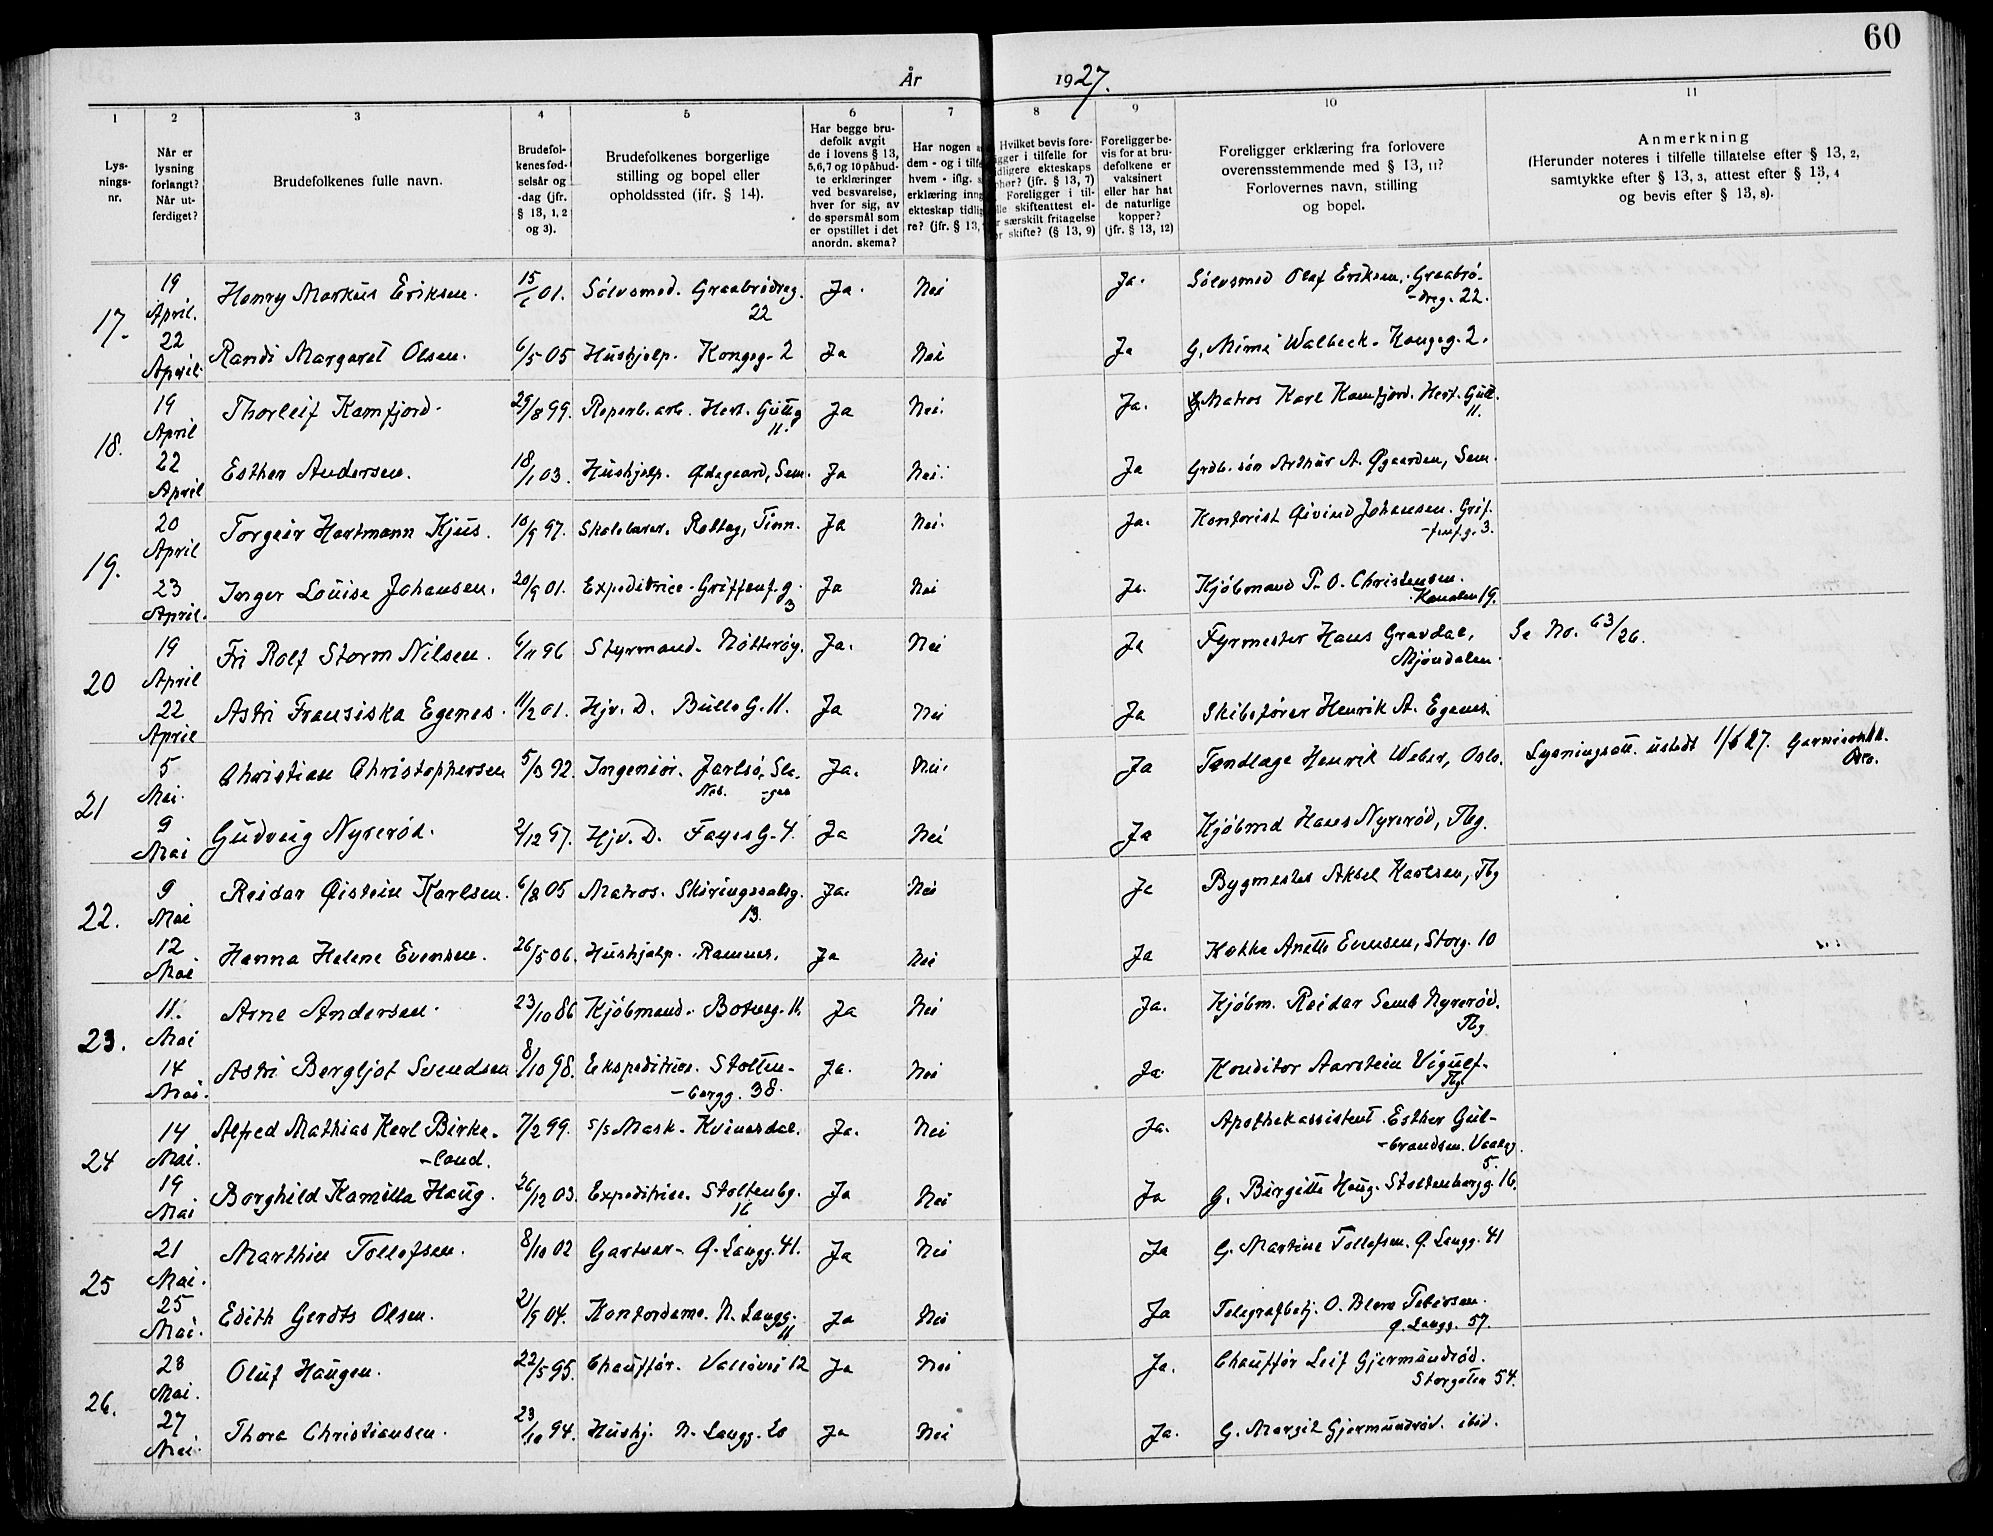 60
År 1927.
1 2 3 4 5 6 7 8 9 10 11
Lys-
nings-
nr.
Når er
lysning
forlangt?
Når ut-
ferdiget?
Brudefolkenes fulle navn.
Brudefol-
kenes fød-
selsår og
-dag (jfr.
§ 13, 1, 2
og 3).
Brudefolkenes borgerlige
stilling og bopel eller
opholdssted (jfr. § 14).
Har begge bru-
defolk avgit
de i lovens § 13,
5,6,7 og 10 påbud-
te erklæringer
ved besvarelse,
hver for sig, av
de spørsmål som
er opstillet i det
anordn. skema?
Har nogen
dem - og i tilf
hvem - iflg.
erklæring inng
ekteskap tidlig
re? (jfr. § 13,
Hvilket bevis fore-
gger i tilfelle for
idligere ekteskaps
phør? (jfr. § 13, 7)
Foreligger i til-
lle skifteattest el-
r særskilt fritagelse
or skifte? (§ 13, 9)
Foreligger be-
vis for at bru-
defolkene er
vaksinert
eller har hat
de naturlige
kopper?
(jfr. § 13, 12)
Foreligger erklæring fra forlovere
overensstemmende med § 13, 11?
Forlovernes navn, stilling
og bopel.
Anmerkning
(Herunder noteres i tilfelle tillatelse efter § 13, 2,
samtykke efter § 13, 3, attest efter § 13, 4
og bevis efter § 13, 8).
17. 19 April. Henry Markus Eriksen. 15/6 01. Sølvsmed. Graabrødreg. 22 Ja. Nei Ja. Sølvsmed Olaf Eriksen. Graabrø-
-dreg. 22.
22 April. Randi Margaret Olsen. 6/5 05 Hushjelp. Kongeg. 2 Ja Nei Ja G. Mimi Walbeck. Kongeg. 2.
18. 19 April Thorleif Kamfjord. 29/8 99. Reperb. arb. Hert. Guttg 11. Ja Nei. Ja. Matros Karl Kamfjord. Hert. Gutt.
11.
22 April Esther Andersen. 18/1 03. Hushjelp. Ødegaard, Sem. Ja Nei. Ja Grdb. søn Arthur A. Øgaarden, Sem.
19. 20 April Torgeir Hartmann Kjus. 10/9 97. Skolelærer. Tinn. Ja Nei. Ja. Kontorist Øivind Johansen. Grif-
-fenf.g. 3.
23 April. Inger Louise Johansen. 20/9 01. Expeditrice. Griffenf.g. 3 Ja Nei Ja. Kjøbmand P. O. Christensen.
Kanalen 19.
20 19 April Fri Rolf Storm Nilsen. 6/11 96 Styrmand. Nøtterøy. Ja. Nei Ja Fyrmester Hans Gravdal,
Mjøndalen. Se No. 63/26.
22 April Astri Fransiska Egenes. 11/2 01. Hjv. D. Bulls G. 11. Ja Nei Ja Skibsfører Henrik A. Egenes.
21 5 Mai. Christian Christophersen 5/3 92. Ingeniør. Jarlsø, Sla-
-gen Ja. Nei. Ja Tandlæge Henrik Weber, Oslo. Lysningsatt. utstedt 1/6 27. Oslo.
9 Mai Gudveig Nyrerød. 2/12 97. Hjv. D. Fayes G. 4. Ja Nei Ja Kjøbmd Hans Nyrerød, Tbg.
22. 9 Mai Reidar Øistein Karlsen. 6/8 05 Matros. Skiringssalsg. 13. Ja. Nei Ja Bygmester Aksel Karlsen, Tbg
12 Mai Hanna Helene Evensen. 26/5 06. Hushjelp. Ramnes. Ja Nei Ja Kokke Anette Evensen, Storg. 10
23. 11. Mai Arne Andersen. 23/10 86 Kjøbmand. Botneg. 11. Ja Nei Ja. Kjøbm. Reidar Semb Nyrerød.
Tbg
14 Mai. Astri Bergljot Svendsen 8/10 98. Ekspeditrice. Stolten-
-bergg. 38. Ja. Nei Ja. Konditor Aarstein
Tbg.
24 14 Mai. Alfred Mathias Karl Birke-
-land. 7/2 99. s/s Mask. Kvinesdal. Ja. Nei Ja. Apothekassistent Esther Gul-
-brandsen.
5.
19 Mai Borghild Kamilla Haug. 26/12 03. Expeditrice. Stoltenbg. 16 Ja Nei Ja G. Birgitte Haug. Stoltenbergg. 16.
25 21 Mai. Marthin Tollefsen. 8/10 02 Gartner. Ø. Langg. 41. Ja Nei Ja G. Martine Tollefsen. Ø. Langg. 41
25 Mai. Edith Gerdts Olsen. 21/9 04. Kontordame. N. Langg. 11 Ja Nei Ja Telegrafbetj. O. Petersen.
Ø. Langg. 57.
26. 23 Mai. Oluf Haugen. 22/5 95. Chauffør. Valløvei 12 Ja Nei Ja. Chauffør Leif Gjermundrød.
Storgaten 54.
27 Mai. Thora Christiansen. 23/10 94. Hushj. N. Langg. 20 Ja Nei Ja. G. Margit Gjermundrød. ibid.